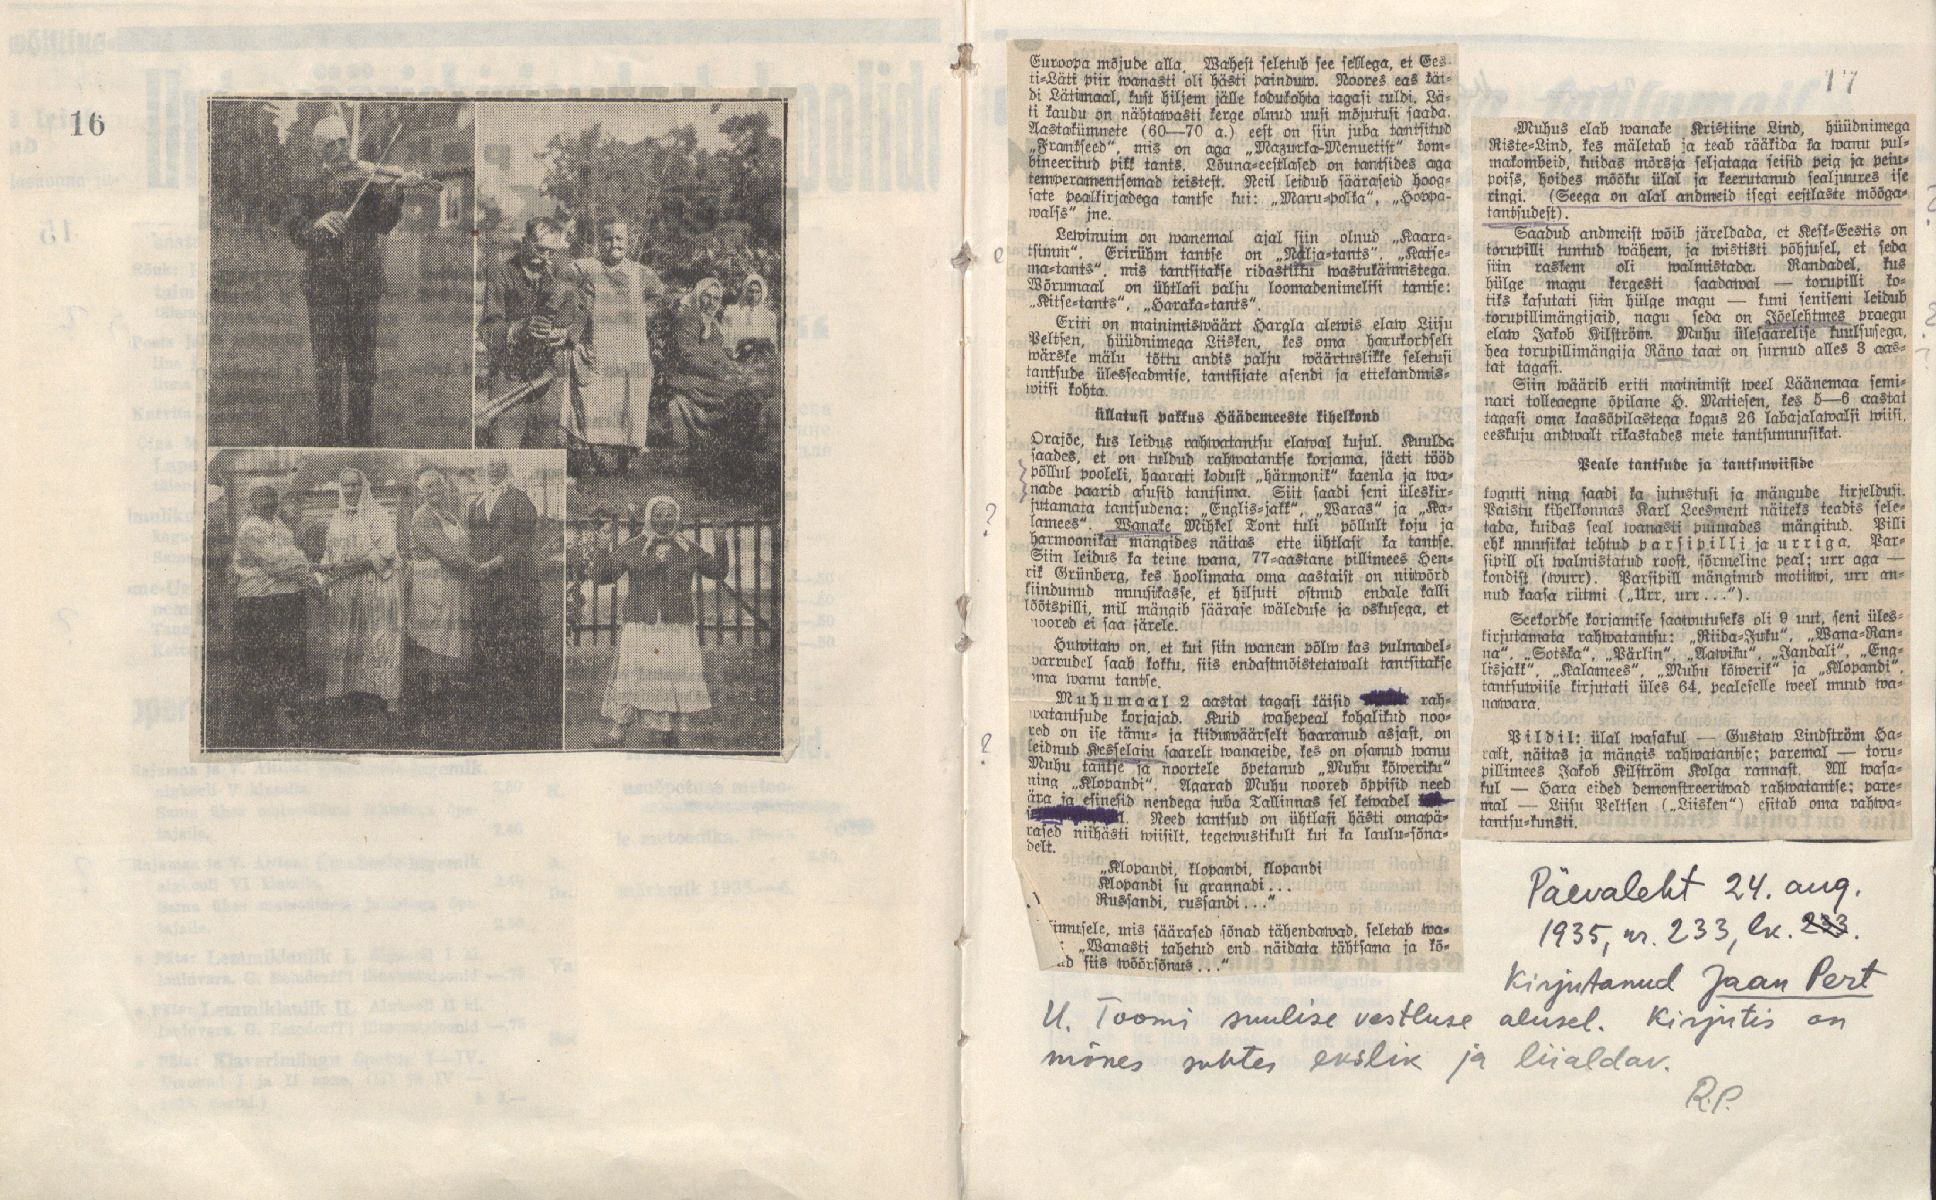 16
17
Euroopa mõjude alla. Wahest seletub see sellega, et Ees-
ti-Läti piir wanasti oli hästi painduw. Noores eas käi-
di Lätimaal, kust hiljem jälle kodukohta tagasi tuldi. Lä-
ti kaudu on nähtawasti kerge olnud uusi mõjutusi saada.
Aastakümnete (60—70 a.) eest on siin juba tantsitud
„Frankseed“, mis on aga „Mazurka-Menuetist“ kom-
bineeritud pikk tants. Lõuna-eestlased on tantsides aga
temperamentsemad teistest. Neil leidub sääraseid hoog-
sate pealkirjadega tantse kui: „Maru-polka“, „Hoopa-
walss“ jne.
Lewinuim on wanemal ajal siin olnud „Kaara-
tsimm“. Erirühm tantse on „Nalja-tants“, „Katse-
ma-tants“, mis tantsitakse ridastikku wastukäimistega.
Wõrumaal on ühtlasi palju loomadenimelisi tantse:
„Kitse-tants“, „Haraka-tants“.
Eriti on mainimiswäärt Hargla alewis elaw Liisu
Peltsen, hüüdnimega Liisken, kes oma harukordselt
wärske mälu tõttu andis palju wäärtuslikke seletusi
tantsude ülesseadmise, tantsijate asendi ja ettekandmis-
wiisi kohta.
Üllatusi pakkus Häädemeeste kihelkond
Orajõe, kus leidus rahwatantsu elawal kujul. Kuulda
saades, et on tuldud rahwatantse korjama, jäeti tööd
põllul pooleli, haarati kodust „härmonik“ kaenla ja wa-
nade paarid asusid tantsima. Siit saadi seni üleskir-
jutamata tantsudena: „Englis-jakk“, „Waras“ ja „Ka-
lamees“. Wanake Mihkel Tont tuli põllult koju ja
harmoonikat mängides näitas ette ühtlasi ka tantse.
Siin leidus ka teine wana, 77-aastane pillimees Hen-
rik Grünberg, kes hoolimata oma aastaist on niiwõrd
kiindunud muusikasse, et hiljuti ostnud endale kalli
lõõtspilli, mil mängib säärase wäleduse ja oskusega, et
noored ei saa järele.
Huwitaw on, et kui siin wanem põlw kas pulmadel-
varrudel saab kokku, siis endastmõistetawalt tantsitakse
oma wanu tantse.
Muhumaal 2 aastat tagasi käisid rah-
watantsude korjajad. Kuid wahepeal kohalikud noo-
red on ise tänu- ja kiiduwäärselt haaranud asjast, on
leidnud Kesselaiu saarelt wanaeide, kes on osanud wanu
Muhu tantse ja noortele õpetanud „Muhu kõweriku“
ning „Klopandi“. Agarad Muhu noored õppisid need
ära ja esinesid nendega juba Tallinnas sel kewadel
Need tantsud on ühtlasi hästi omapä-
rased niihästi wiisilt, tegewustikult kui ka laulu-sõna-
delt.
„Klopandi, klopandi, klopandi
Klopandi su grannadi...
Russandi, russandi...“
simusele, mis säärased sõnad tähendawad, seletab wa-
„Wanasti tahetud end näidata tähtsana ja kõ-
siis wõõrsõnus...“
Muhus elab wanake Kristiine Lind, hüüdnimega
Riste-Lind, kes mäletab ja teab rääkida ka wanu pul-
makombeid, kuidas mõrsja seljataga seisid peig ja peiu-
poiss, hoides mõõku ülal ja keerutanud sealjuures ise
ringi. (Seega on alal andmeid isegi eestlaste mõõga-
tantsudest).
Saadud andmeist wõib järeldada, et Kesk-Eestis on
torupilli tuntud wähem, ja wististi põhjusel, et seda
siin raskem oli walmistada. Randadel, kus
hülge magu kergesti saadawal — torupilli ko-
tiks kasutati siin hülge magu — kuni seniseni leidub
torupillimängijaid, nagu seda on Jõelehtmes praegu
elaw Jakob Kilström. Muhu ülesaarelise kuulsusega,
hea torupillimängija Räno taat on surnud alles 3 aas-
tat tagasi.
Siin wäärib eriti mainimist weel Läänemaa semi-
nari tolleaegne õpilane H. Matiesen, kes 5—6 aastat
tagasi oma kaasõpilastega kogus 26 labajalawalsi wiisi,
eeskuju andwalt rikastades meie tantsumuusikat.
Peale tantsude ja tantsuwiiside
koguti ning saadi ka jutustusi ja mängude kirjeldusi.
Paistu kihelkonnas Karl Leesment näiteks teadis sele-
tada, kuidas seal wanasti pulmades mängitud. Pilli
ehk muusikat tehtud parsipilli ja urriga. Par-
sipill oli walmistatud roost, sõrmeline peal; urr aga —
kondist (wurr). Parsipill mänginud motiiwi, urr an-
nud kaasa rütmi („Urr, urr...“).
Seekordse korjamise saawutuseks oli 9 uut, seni üles-
kirjutamata rahwatantsu: „Riida-Juku“, „Wana-Ran-
na“, „Sotska“, „Pärlin“, „Aawiku“, „Jandali“, „Eng-
lisjakk“, „Kalamees“, „Muhu kõwerik“ ja „Klopandi“,
tantsuwiise kirjutati üles 64, pealeselle weel muud wa-
nawara.
Pildil: ülal wasakul — Gustaw Lindström Ha-
ralt, näitas ja mängis rahwatantse; paremal — toru-
pillimees Jakob Kilström Kolga rannast. All wasa-
kul — Hara eided demonstreeriwad rahwatantse; pare-
mal — Liisu Peltsen („Liisken“) esitab oma rahwa-
tantsu-kunsti.
Päevaleht 24. aug.
1935, nr. 233, lk. 233.
Kirjutanud Jaan Pert
U. Toomi suulise vestluse alusel. Kirjutis on
mõnes suhtes ekslik ja liialdav.
R.P.